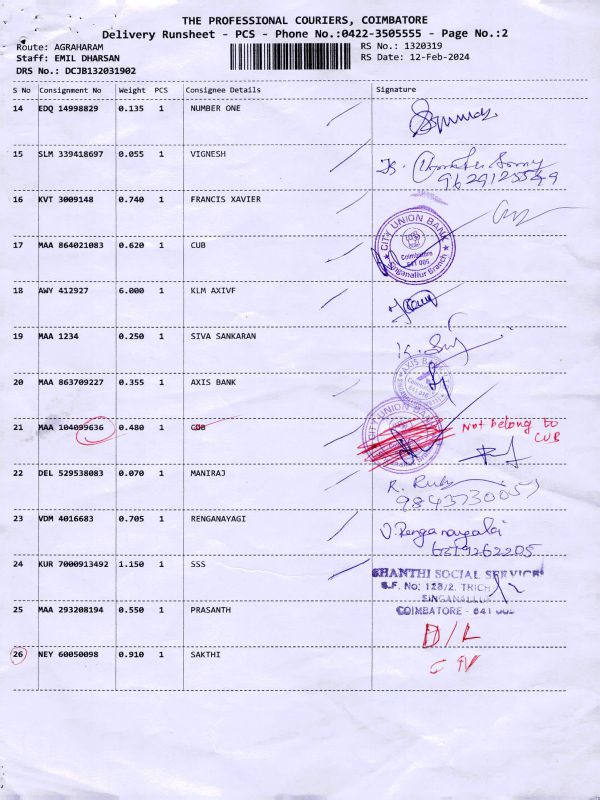 THE PROFESSIONAL COURIERS, COIMBATORE
Delivery Runsheet - PCS - Phone No.:0422-3505555 - Page No.:2
Route: AGRAHARAM
RS No.: 1320319
Staff: EMIL DHARSAN
RS Date: 12-Feb-2024
DRS No.: DCJB132031902
S No Consignment No Weight PCS Consignee Details Signature
14 EDQ 14998829 0.135 1 NUMBER ONE
15 SLM 339418697 0.055 1 VIGNESH
9629125549
16 KVT 3009148 0.740 1 FRANCIS XAVIER
CITY UNION BANK
Coimbatore
641 005
Singanallur Branch
17 MAA 864021083 0.620 1 CUB
18 AWY 412927 6.000 1 KLM AXIVF
19 MAA 1234 0.250 1 SIVA SANKARAN
AXIS BANK
20 MAA 863709227 0.355 1 AXIS BANK
CITY UNION BANK
21 MAA 104099636 0.480 1 CUB Not belong to
CUB
22 DEL 529538083 0.070 1 MANIRAJ
23 VDM 4016683 0.705 1 RENGANAYAGI V. Renganayaki
24 KUR 7000913492 1.150 1 SSS SHANTHI SOCIAL SERVICE
S.F. No: 128/2. TRICH
SINGANALLUR
COIMBATORE - 641 005
25 MAA 293208194 0.550 1 PRASANTH
D/L
26 NEY 60050098 0.910 1 SAKTHI